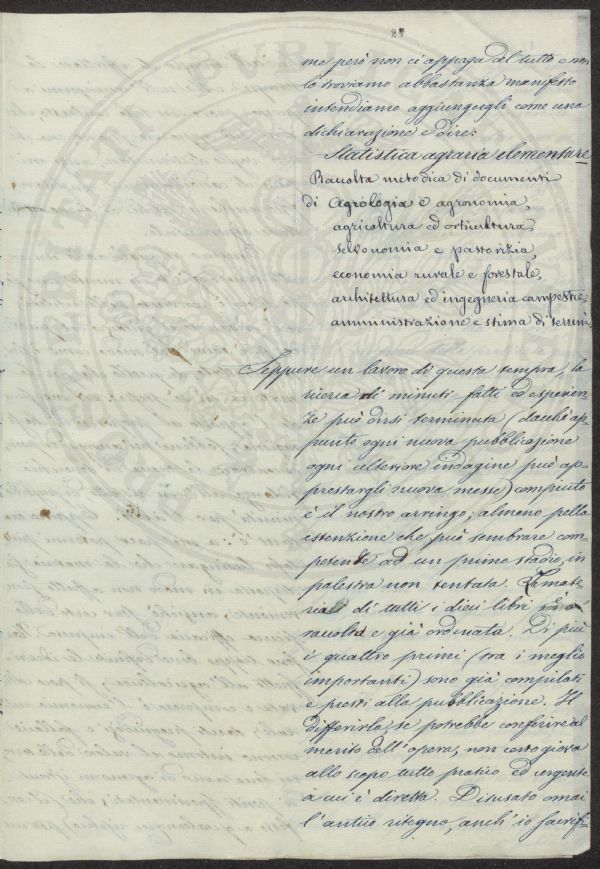 27
me però non ci appaga al tutto e non
lo troviamo abbastanza manifesto
intendiamo aggiungergli come una
dichiarazione e dire:
Statistica agraria elementare
Raccolta metodica di documenti
di Agrologia e agronomia,
agricoltura ed orticultura,
selvonomia e pastorizia,
economia rurale e forestale,
architettura ed ingegneria campestre,
amministrazione e stima di terreni.
Seppure un lavoro di questa tempra, la
ricerca di minuti fatti ed esperien-
ze può dirsi terminata (dacchè ap-
punto ogni nuova pubblicazione
ogni ulteriore indagine può ap-
prestargli nuova messe) compiuto
è il nostro arringo, almeno pella
estenzione che può sembrare com-
petente ad un primo stadio, in
palestra non tentata. mate-
riali di tutti i dieci libri
raccolta e già ordinata. Di più
i quattro primi (tra i meglio
importanti) sono già compilati
e presti alla pubblicazione. Il
differirla se potrebbe conferire al
merito dell'opera, non certo giova
allo scopo tutto pratico ed urgente
a cui è diretta. Disusato omai
l'antico ritegno, anch'io sacrifi-